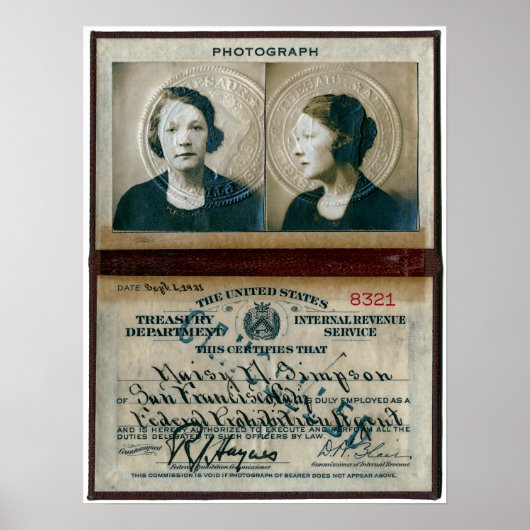 PHOTOGRAPH
DATE Sept. 1, 1921
8321
THE UNITED STATES
TREASURY DEPARTMENT
INTERNAL REVENUE SERVICE
THIS CERTIFIES THAT
Daisy M Simpson
OF San Francisco, Cal, IS DULY EMPLOYED AS A
Federal Prohibition Agent
AND IS HEREBY AUTHORIZED TO EXECUTE AND PERFORM ALL THE
DUTIES DELEGATED TO SUCH OFFICERS BY LAW.
Countersigned
R A Haynes
D. H. Blair
Federal Prohibition Commissioner.
Commissioner of Internal Revenue.
THIS COMMISSION IS VOID IF PHOTOGRAPH OF BEARER DOES NOT APPEAR ABOVE.